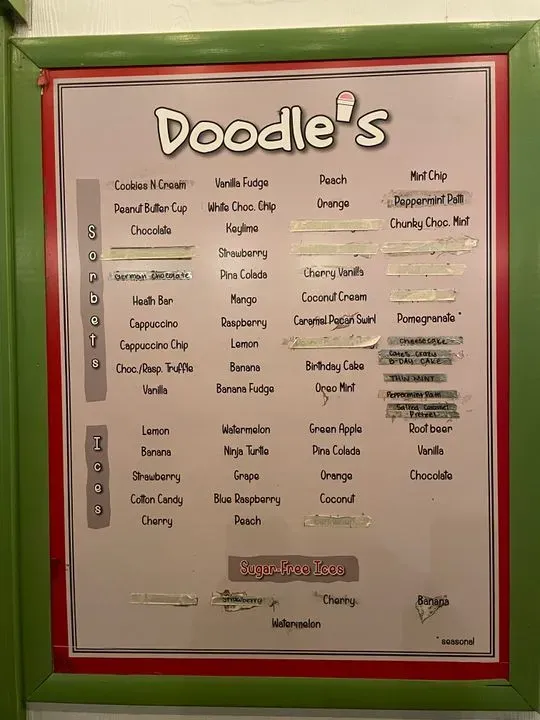 Doodle's
Sorbets
Cookies N Cream Vanilla Fudge Peach Mint Chip
Peanut Butter Cup White Choc. Chip Orange Peppermint Patti
Chocolate Keylime Chunky Choc. Mint
Strawberry
German Chocolate Pina Colada Cherry Vanilla
Heath Bar Mango Coconut Cream
Cappuccino Raspberry Caramel Pecan Swirl Pomegranate *
Cappuccino Chip Lemon CHEESECAKE
Choc./Rasp. Truffle Banana Birthday Cake CAKES CRAZY
B-DAY CAKE
Vanilla Banana Fudge Oreo Mint THIN MINT
Peppermint Patti
Salted Caramel
Pretzel
Ices
Lemon Watermelon Green Apple Root beer
Banana Ninja Turtle Pina Colada Vanilla
Strawberry Grape Orange Chocolate
Cotton Candy Blue Raspberry Coconut
Cherry Peach
Sugar-Free Ices
Strawberry Cherry Banana
Watermelon
* seasonal